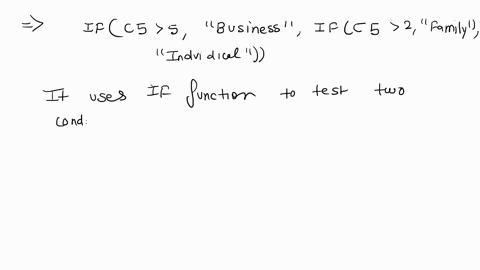 => IF(C5 > 5, "Business", IF(C5 > 2, "Family"),
"Individical"))
It uses IF function to test two
cond.